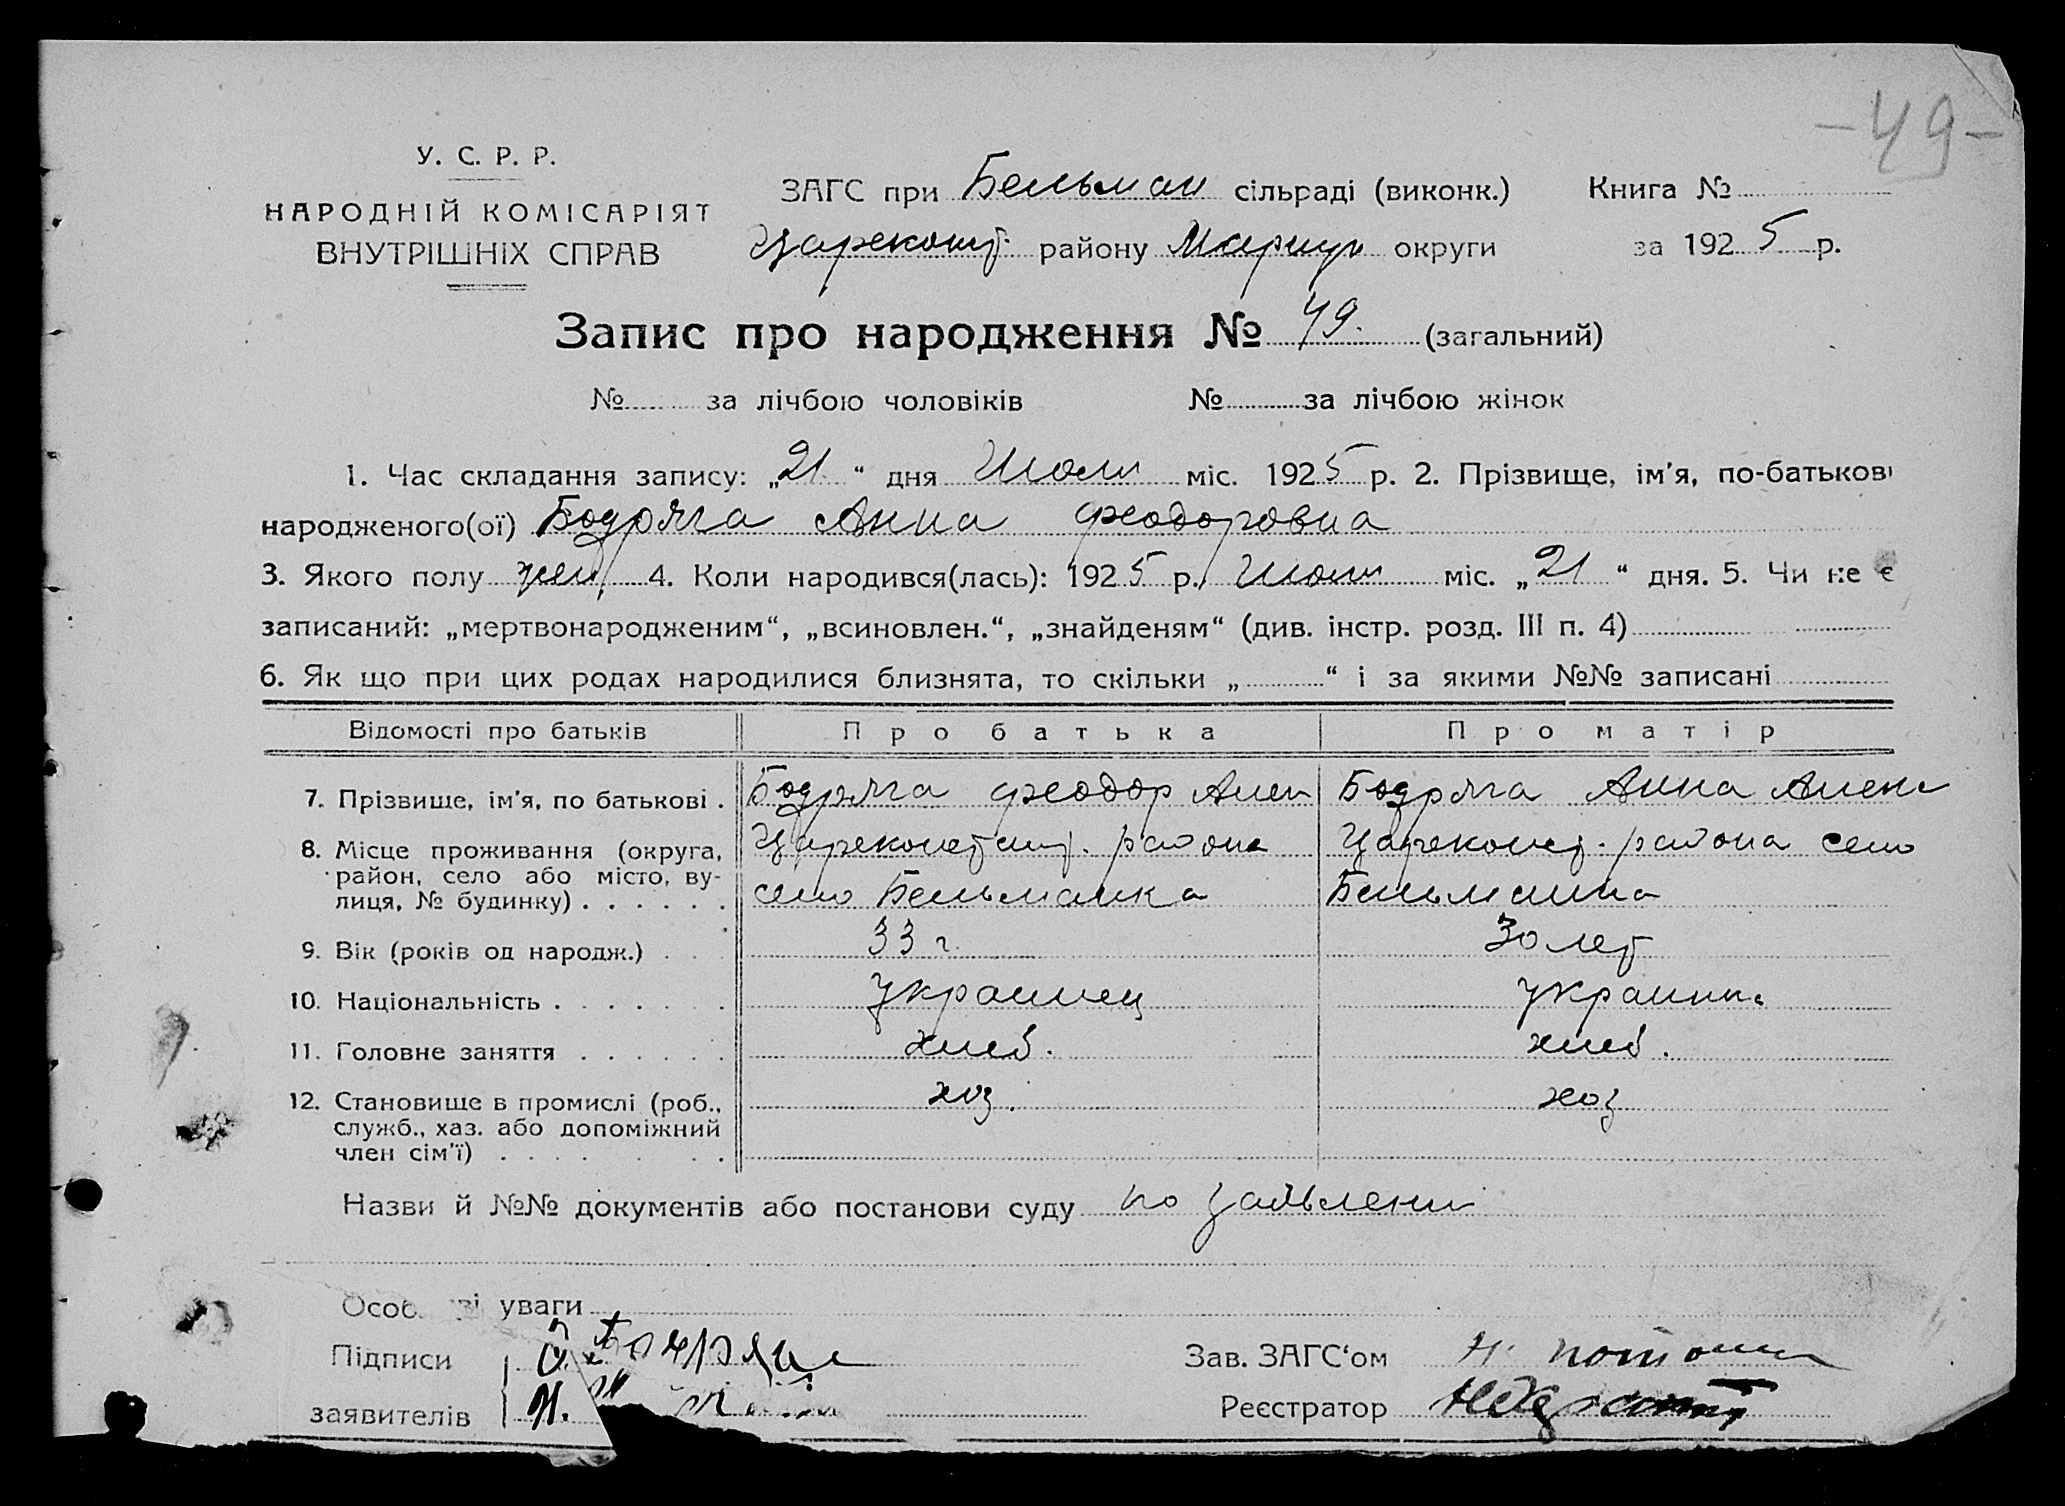 -49-
У. С. Р. Р.
НАРОДНІЙ КОМІСАРІЯТ
ВНУТРІШНІХ СПРАВ
ЗАГС при Бельман сільраді (виконк.) Книга №
району Мариуп округи за 1925 р.
Запис про народження № 49. (загальний)
№ за лічбою чоловіків № за лічбою жінок
1. Час складання запису: „21“ дня Июля міс. 1925 р. 2. Прізвище, ім'я, по-батькові
народженого(ої) Бодряга Анна Феодоровна
3. Якого полу жен. 4. Коли народився(лась): 1925 р. Июля міс. „21“ дня. 5. Чи не є
записаний: „мертвонародженим“, „всиновлен.“, „знайденям“ (див. інстр. розд. III п. 4)
6. Як що при цих родах народилися близнята, то скільки „ “ і за якими №№ записані
Відомості про батьків Про батька Про матір
7. Прізвище, ім'я, по батькові . Бодряга Феодор Алек Бодряга Анна Алекс
8. Місце проживання (округа, район, село або місто, вулиця, № будинку) . . . . . . района
село Бельманка
района село
Бельманка
9. Вік (років од народж.) . . . 33 г. 30 лет
10. Національність . . . . . . . Украинец Украинка
11. Головне заняття . . . . . . хлеб. хлеб.
12. Становище в промислі (роб., хоз. хоз
служб., хаз. або допоміжний
член сім'ї) . . . . . . .
Назви й №№ документів або постанови суду по заявлению
уваги
Підписи Зав. ЗАГС'ом
заявителів Реєстратор